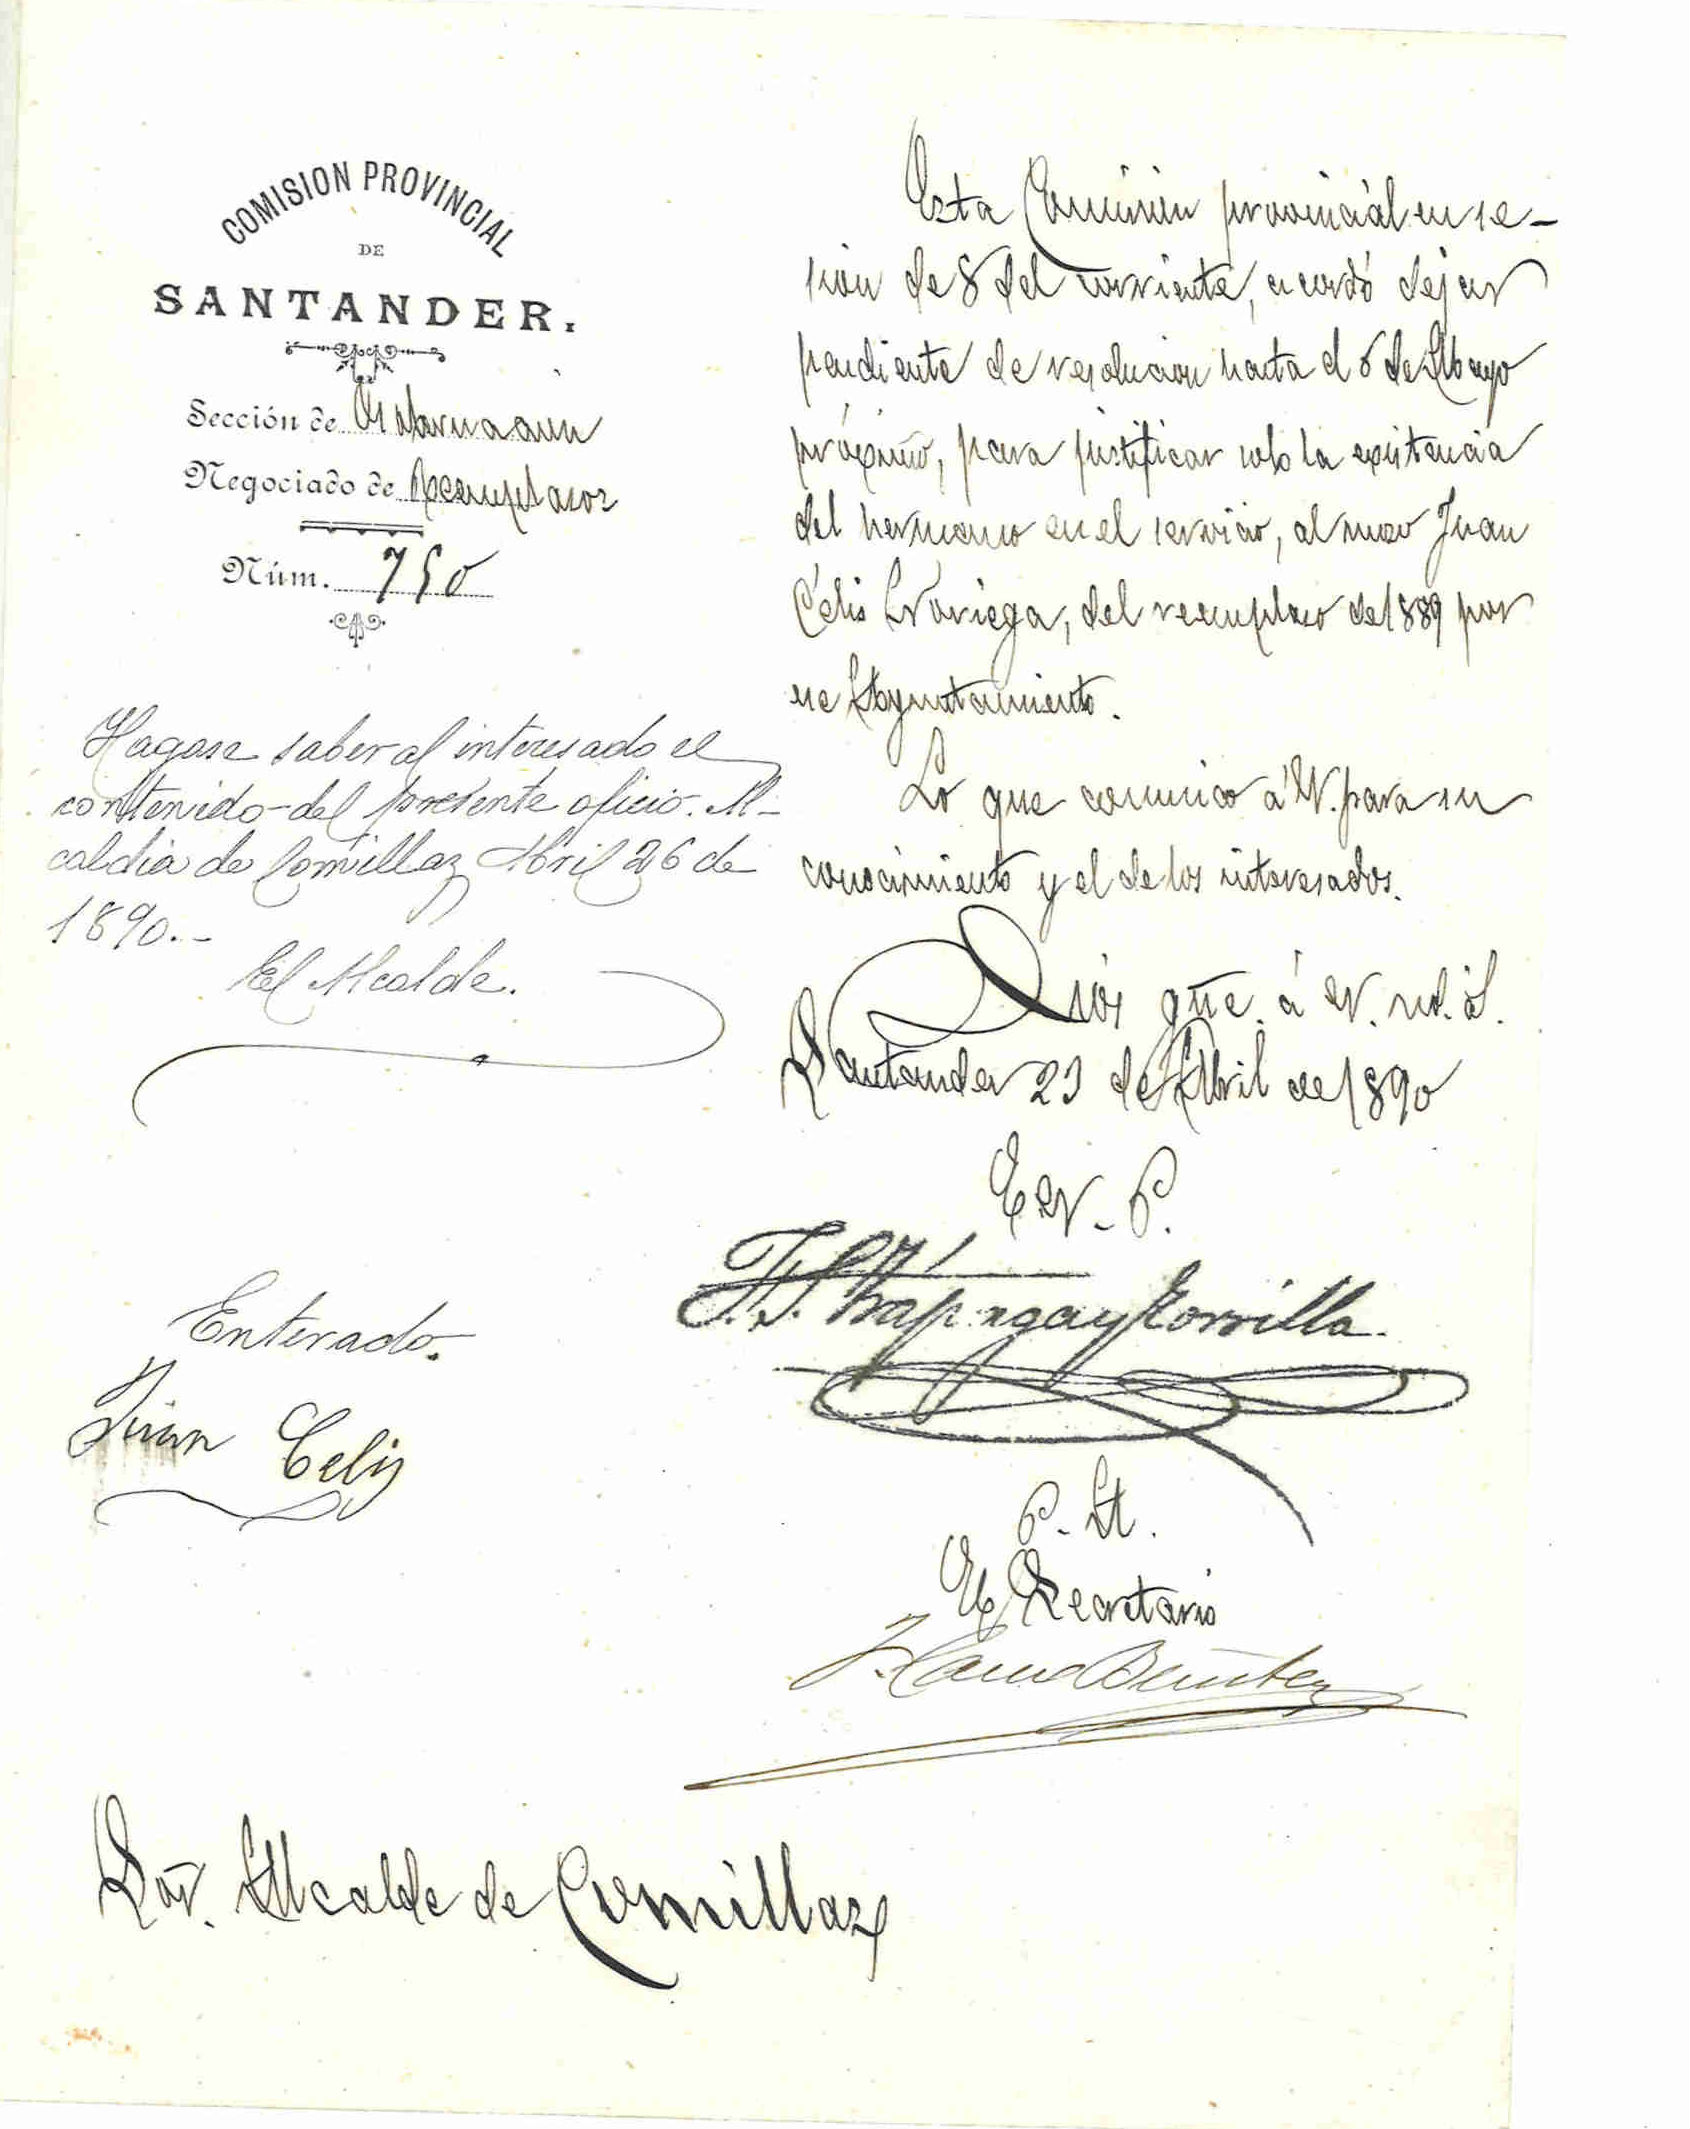 COMISION PROVINCIAL
DE
SANTANDER.
Sección de
Negociado de Reemplazos
Núm. 750
Esta Comisión provincial en se-
sión de 8 del corriente, acordó dejar
pendiente de resolucion hasta el 6 de Mayo
próximo, para justificar solo la existencia
del hermano en el servicio, al mozo Juan
Célis Noriega, del reemplazo de 1889 por
ese Ayuntamiento.
Lo que comunico á V. para su
conocimiento y el de los interesados.
Dios gũe. á V. m. a.
Santander 23 de Abril de 1890
E V. P.
P. A.
El Secretario
Hagase saber al interesado el
contenido del presente oficio. Al-
caldia de Comillas Abril 26 de
1890.-
El Alcalde.
Enterado.
Juan Celis
Sor. Alcalde de Comillas